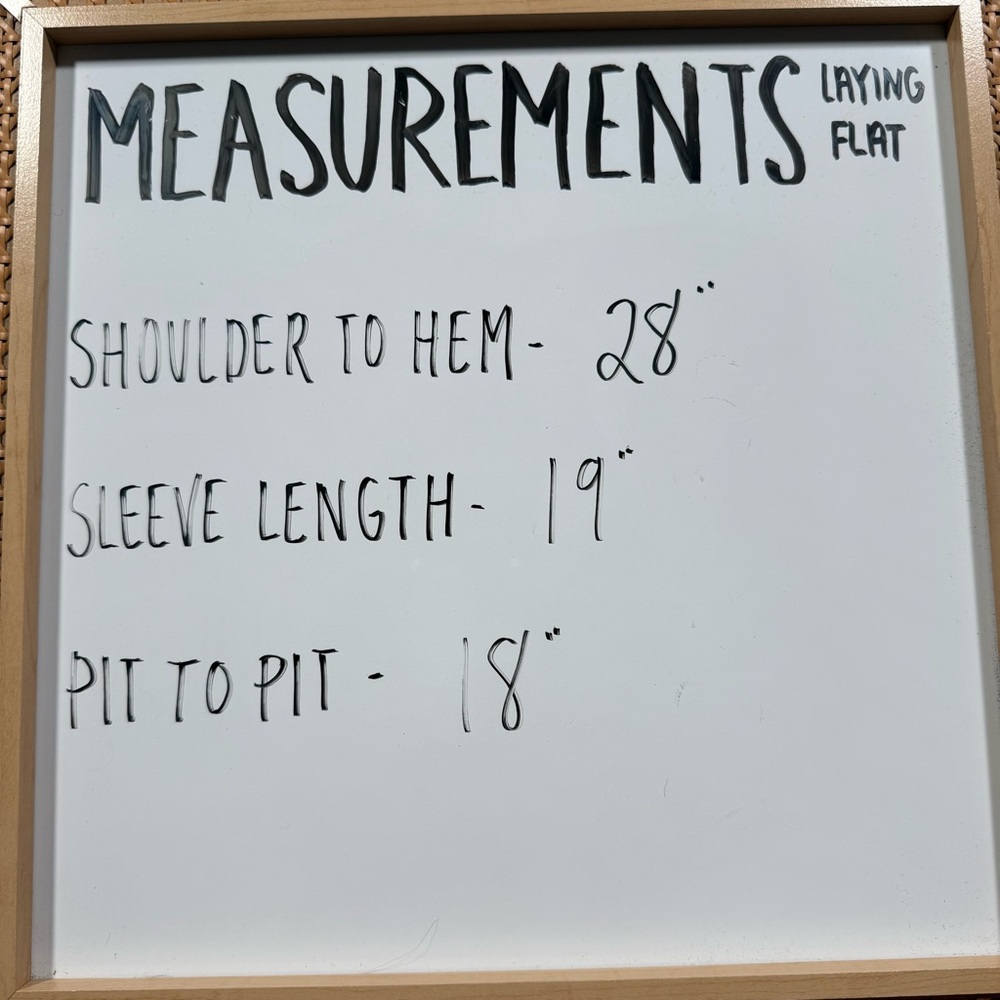 MEASUREMENTS LAYING FLAT
SHOULDER TO HEM - 28"
SLEEVE LENGTH - 19"
PIT TO PIT - 18"